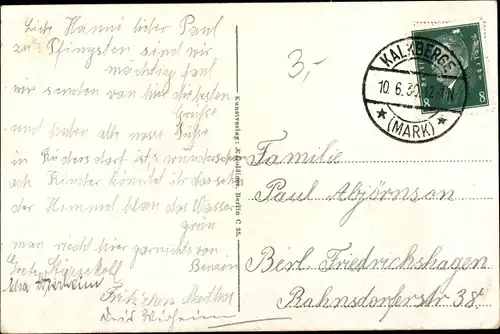 Liebe Hanni lieber Paul
zu Pfingsten sind wir
mächtig faul
wir senden von hier die besten
Grüße
und haben alle nasse Füße
in Rüdersdorf ist's wunderschön
ach Kinder könntet ihr das sehn
der Himmel blau das Wasser
grün
man riecht hier garnichts von
Benzin
Grete
Fritzchen Martha
3,-
KALKBERGE
10.6.30.12-1N
(MARK)
8 8
Kunstverlag: Berlin C 25.
Familie
Paul Abjörnson
Berl. Friedrichshagen
Rahnsdorferstr 38.